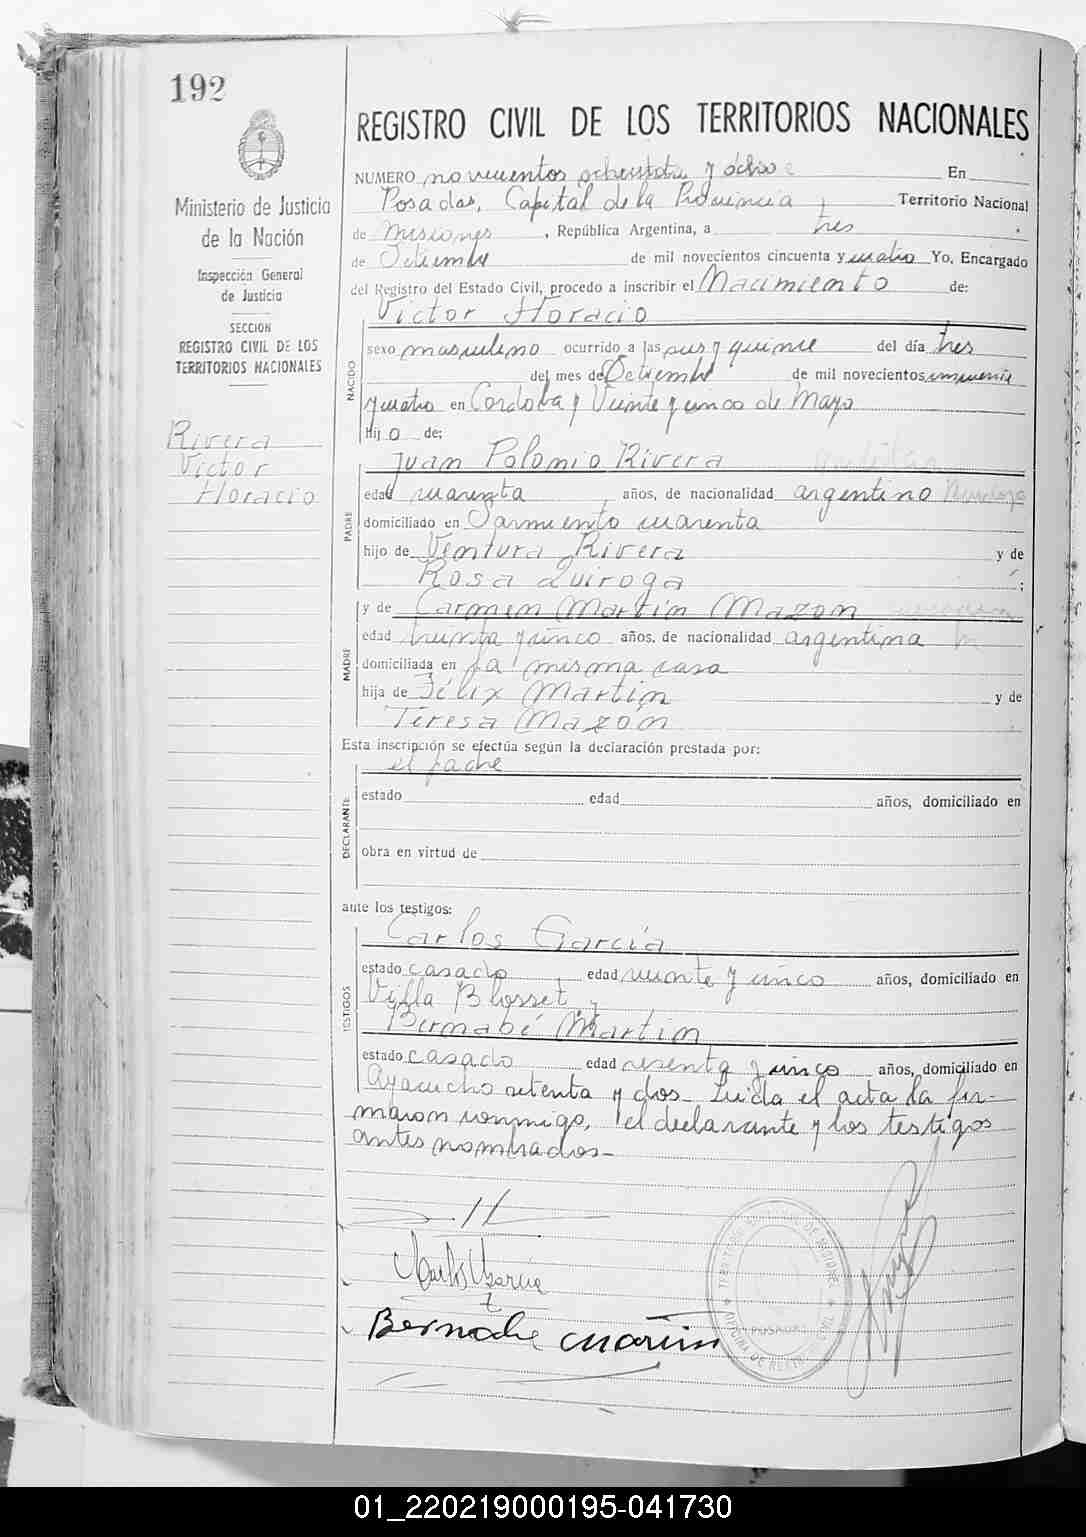 192
Ministerio de Justicia
de la Nación
Inspección General
de Justicia
SECCION
REGISTRO CIVIL DE LOS
TERRITORIOS NACIONALES
Rivera
Victor
Horacio
REGISTRO CIVIL DE LOS TERRITORIOS NACIONALES
NUMERO novecientos ochenta y ocho En
Posadas, Capital de la Provincia, Territorio Nacional
de Misiones, República Argentina, a tres
de Setiembre de mil novecientos cincuenta y cuatro Yo, Encargado
del Registro del Estado Civil, procedo a inscribir el Nacimiento de:
Victor Horacio
NACIDO
sexo masculino ocurrido a las seis y quince del día tres
del mes de Setiembre de mil novecientos cincuenta
y cuatro en Cordoba y Veinte y cinco de Mayo
Hijo de:
Juan Polonio Rivera
PADRE
edad cuarenta años, de nacionalidad argentino Mendoza
domiciliado en Sarmiento cuarenta
hijo de Ventura Rivera y de
Rosa Quiroga ;
y de Carmen Martin Mazon
MADRE
edad treinta y cinco años, de nacionalidad argentina
domiciliada en la misma casa
hija de Félix Martin y de
Teresa Mazón
Esta inscripción se efectúa según la declaración prestada por:
el padre
DECLARANTE
estado edad años, domiciliado en
obra en virtud de
ante los testigos:
Carlos García
TESTIGOS
estado casado edad veinte y cinco años, domiciliado en
Villa Blosset y
Bernabé Martin
estado casado edad sesenta y cinco años, domiciliado en
Ayacucho setenta y dos- Leída el acta la fir-
maron conmigo, el declarante y los testigos
antes nombrados-
Carlos Garcia
Bernabe Martin
POSADAS
01_220219000195-041730